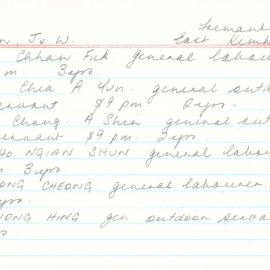 Fremant
n, J & W. East Kimb
Chhan Fuk. general labour
m. 3 yrs.
Chia A Yun. general outd
servant $9 pm 2 yrs.
Chong A Shin general out
servant $9 pm. 2 yrs
HO NGIAN SHUN general labou
m 3 yrs.
ONG CHEONG. general labourer.
yrs.
UONG HING gen outdoor serva
rs.